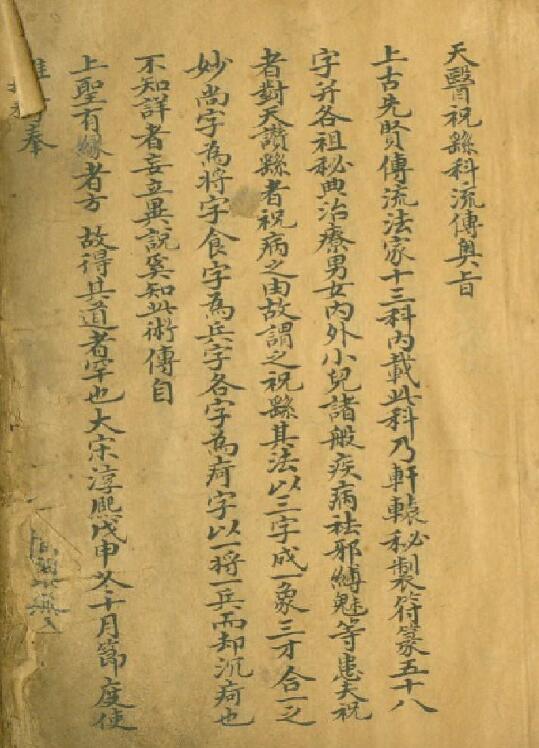 天醫祝繇科流傳奧旨
上古先賢傳流法家十三科內載此科乃軒轅秘製符篆五十八
字并各祖秘典治療男女內外小兒諸般疾病祛邪縛魅等患夫祝
者對天讚繇者祝病之由故謂之祝繇其法以三字成一象三才合一之
妙尚字為將字食字為兵字各字為疴字以一將一兵而却沉疴也
不知詳者妄立異說奚知此術傳自
上聖有緣者方 故得其道者罕也大宋淳熙戊申冬十月節度使
奉